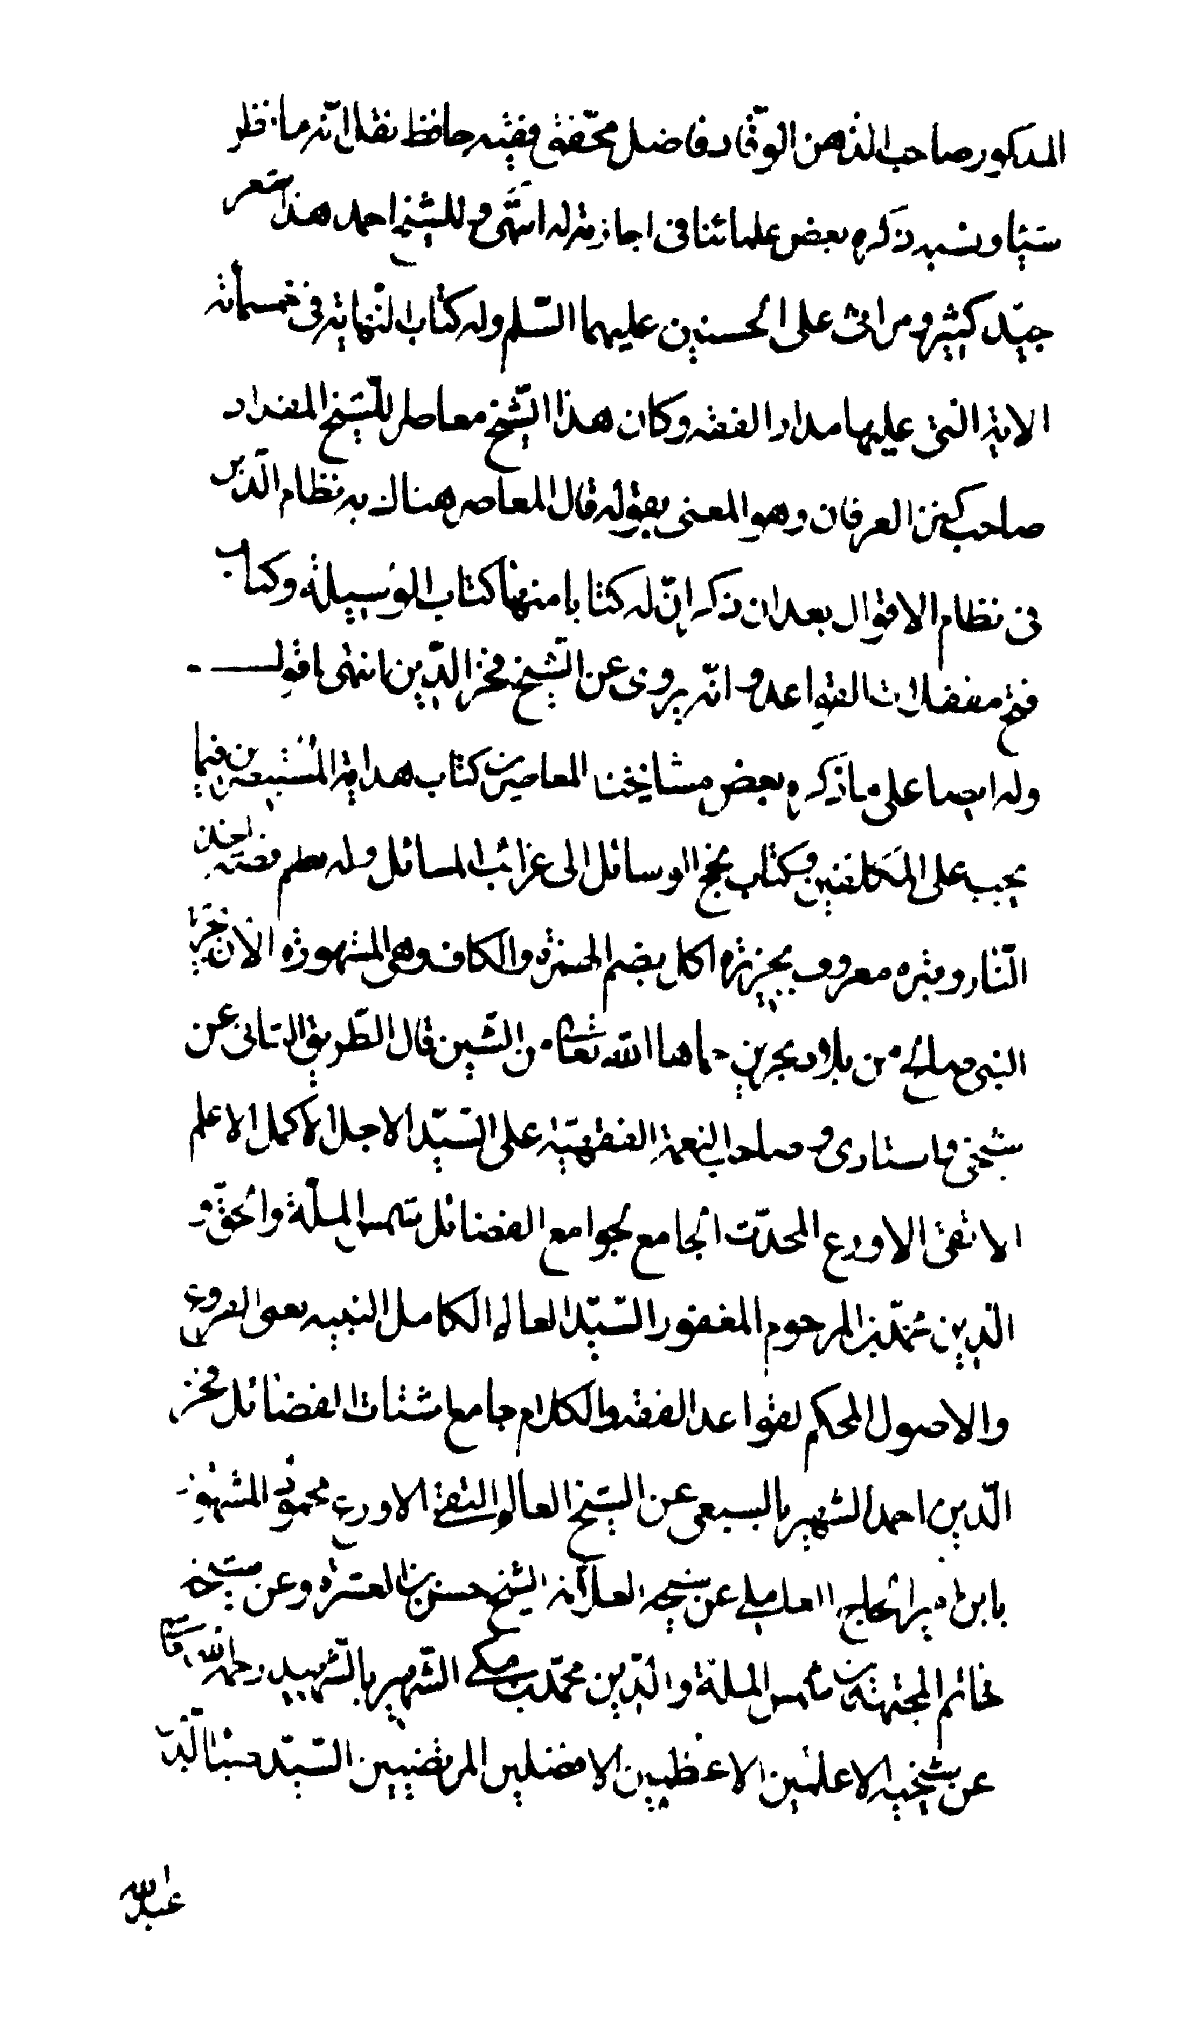 المذكور صاحب الذهن الوقّاد فاضل محقّق فقيه حافظ نقل انّه ما نظر
شيئا ونسيه ذكره بعض علمائنا فى اجازته له انتهى و للشيخ احمد هذا شعر
جيّد كثير و مراثى على الحسنين عليهما السّلم وله كتاب النّهاية فى خمسمائة
الاية التى عليها مدار الفقه وكان هذا الشّيخ معاصر للشّيخ المقداد
صاحب كنز العرفان وهو المعنى بقوله قال المعاصر هناك به نظام الدّين
فى نظام الاقوال بعد ان ذكر انّ له كتابا منها كتاب الوسيلة وكتاب
فتح مقفلات القواعد و انّه يروى عن الشّيخ فخر الدّين انتهى اقول
وله ايضا على ما ذكره بعض مشايخنا المعاصرين كتاب هداية المستبصرين فيما
يجب على المكلفين وكتاب نخج الوسائل الى غرائب المسائل وله نظم قصّة اخذ
النّار وقبره معروف بجزيرة اكل بضم الهمزة والكاف وهى المشهورة الان بجزيرة
النبى صالح من بلاد بحرين حماها الله تعالى من الشّين قال الطّريق الثانى عن
شيخى واستادى و صاحب النعمة الفقهيّة على السّيّد الاجل الاكمل الاعلم
الاتقى الاورع المحدّث الجامع لجوامع الفضائل شمس الملّة والحقّ و
الدّين محمّد بن المرحوم المغفور السّيّد العالم الكامل النبيه يعنى الفروع
والاصول المحكم لقواعد الفقه والكلام جامع شتات الفضائل فخر
الدّين احمد الشهير بالسبعى عن الشّيخ العالم التقى الاورع محمود المشهور
بابن امير الحاج العاملى عن شيخه العلّامة الشّيخ حسن بن العشرة وعن شيخه
خاتم المجتهدين شمس الملة والدّين محمّد بن مكى الشّهير بالشّهيد رحمه الله
عن شيخيه الاعلمين الاعظمين الافضلين المرتضيين السّيّد ضياء الدّين
عبد الله